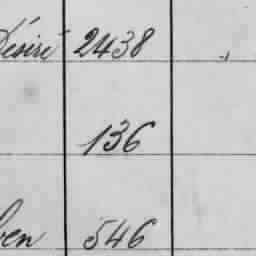 Désiré 2438
136
en 546